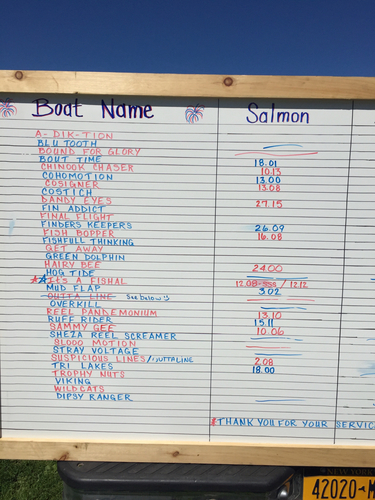 Boat Name Salmon
A-DIK-TION
BLU TOOTH
BOUND FOR GLORY
BOUT TIME 18.01
CHINOOK CHASER 10.13
COHOMOTION 13.00
COSIGNER 13.08
COSTICH
DANDY EYES 27.15
FIN ADDICT
FINAL FLIGHT
FINDERS KEEPERS 26.09
FISH BOPPER 16.08
FISHFULL THINKING
GET AWAY
GREEN DOLPHIN
HAIRY BEE 24.00
HOG TIDE
ITS A FISHAL 12.08 / 12.12
MUD FLAP 3.02
OUTTA LINE See below
OVERKILL
REEL PANDEMONIUM 13.10
RUFF RIDER 15.11
SAMMY GEE 10.06
SHEZA REEL SCREAMER
SLOOO MOTION
STRAY VOLTAGE
SUSPICIOUS LINES/OUTTALINE 2.08
TRI LAKES 18.00
TROPHY NUTS
VIKING
WILDCATS
DIPSY RANGER
THANK YOU FOR YOUR SERVIC
NEW YORK
42020-M